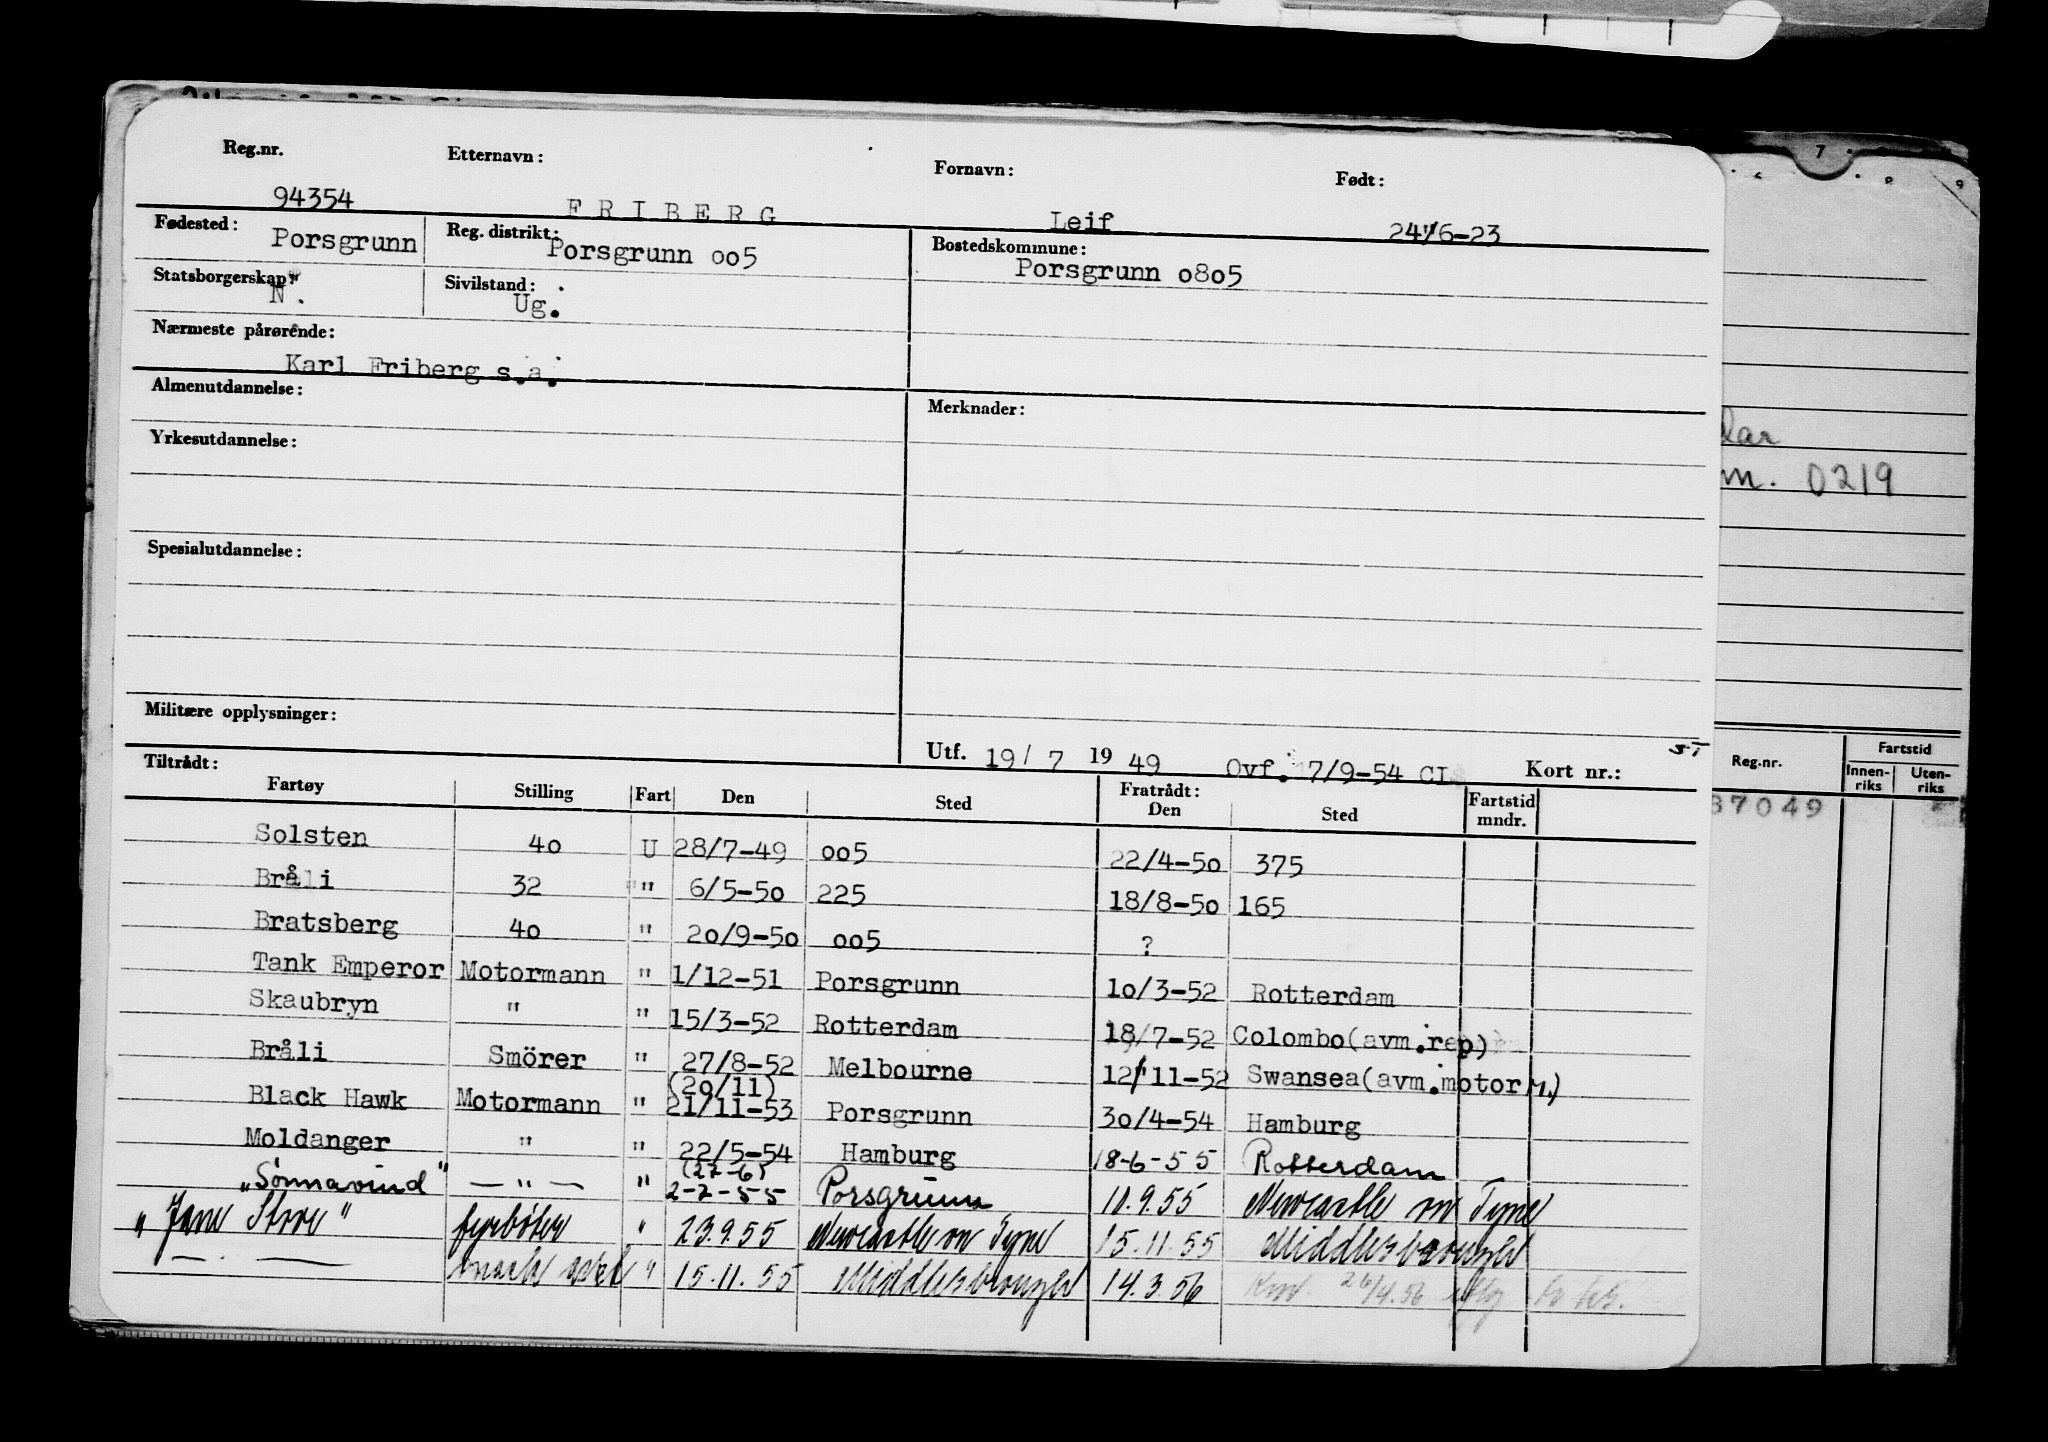 Reg.nr. Etternavn: Fornavn: Født:
94354 FRIBERG Leif 24/6-23
Fødested: Porsgrunn Reg. distrikt: Porsgrunn 005 Bostedskommune: Porsgrunn 0805
Statsborgerskap: N. Sivilstand: Ug.
Nærmeste pårørende:
Karl Friberg s.a.
Almenutdannelse: Merknader:
Yrkesutdannelse:
Spesialutdannelse:
Militære opplysninger:
Utf. 19/ 7 19 49 Ovf. 17/9-54 CI Kort nr.:
Tiltrådt: Fratrådt:
Fartøy Stilling Fart Den Sted Den Sted Fartstid mndr.
Solsten 40 U 28/7-49 005 22/4-50 375
Bråli 32 " 6/5-50 225 18/8-50 165
Bratsberg 40 " 20/9-50 005 ?
Tank Emperor Motormann " 1/12-51 Porsgrunn 10/3-52 Rotterdam
Skaubryn " " 15/3-52 Rotterdam 18/7-52 Colombo(avm.rep)
Bråli Smörer " 27/8-52 Melbourne 12/11-52 Swansea(avm.motorM.)
(20/11)
Black Hawk Motormann " 21/11-53 Porsgrunn 30/4-54 Hamburg
Moldanger " " 22/5-54 Hamburg 18-6-55 Rotterdam
(27-6)
"Sønnavind" — " — " 2-7-55 Porsgrunn 10.9.55 Newcastle on Tyne
"Jane Stove" fyrbøter " 23.9.55 Newcastle on Tyne 15.11.55 Middlesbrough
— . — " 15.11.55 Middlesbrough 14.3.56 26/4.56
lar
m. 0219
7
Reg.nr. Fartstid
Innen-riks Uten-riks
37049